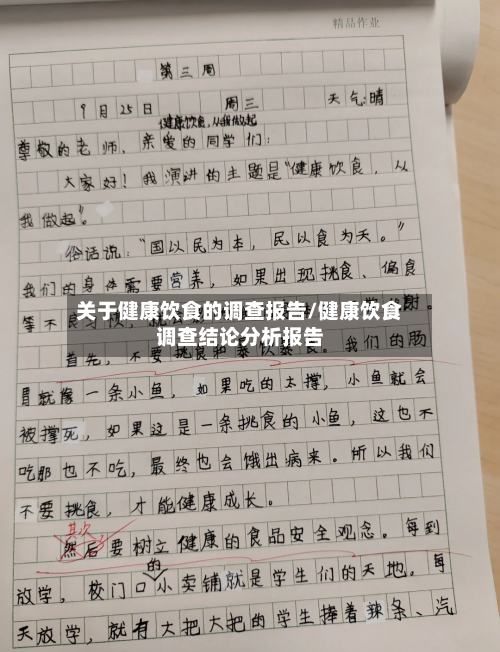 精品作业
第三周
9月25日 周三 天气:晴
健康饮食,从我做起
尊敬的老师、亲爱的同学们:
大家好!我演讲的主题是“健康饮食,从
我做起”。
俗话说:“国以民为本,民以食为天。”
我们的身体需要营养,如果出现挑食、偏食
等不良习惯,就
关于健康饮食的调查报告/健康饮食
调查结论分析报告
首先,不要挑食和暴饮暴食。我们的肠
胃就像一条小鱼,如果吃的太撑,小鱼就会
被撑死,如果这是一条挑食的小鱼,这也不
吃那也不吃,最终也会饿出病来。所以我们
不要挑食,才能健康成长。
其次
然后要树立健康的食品安全观念。每到
放学,校门口的小卖铺就是学生们的天地。每
天放学,就有大把大把的学生捧着辣条、汽